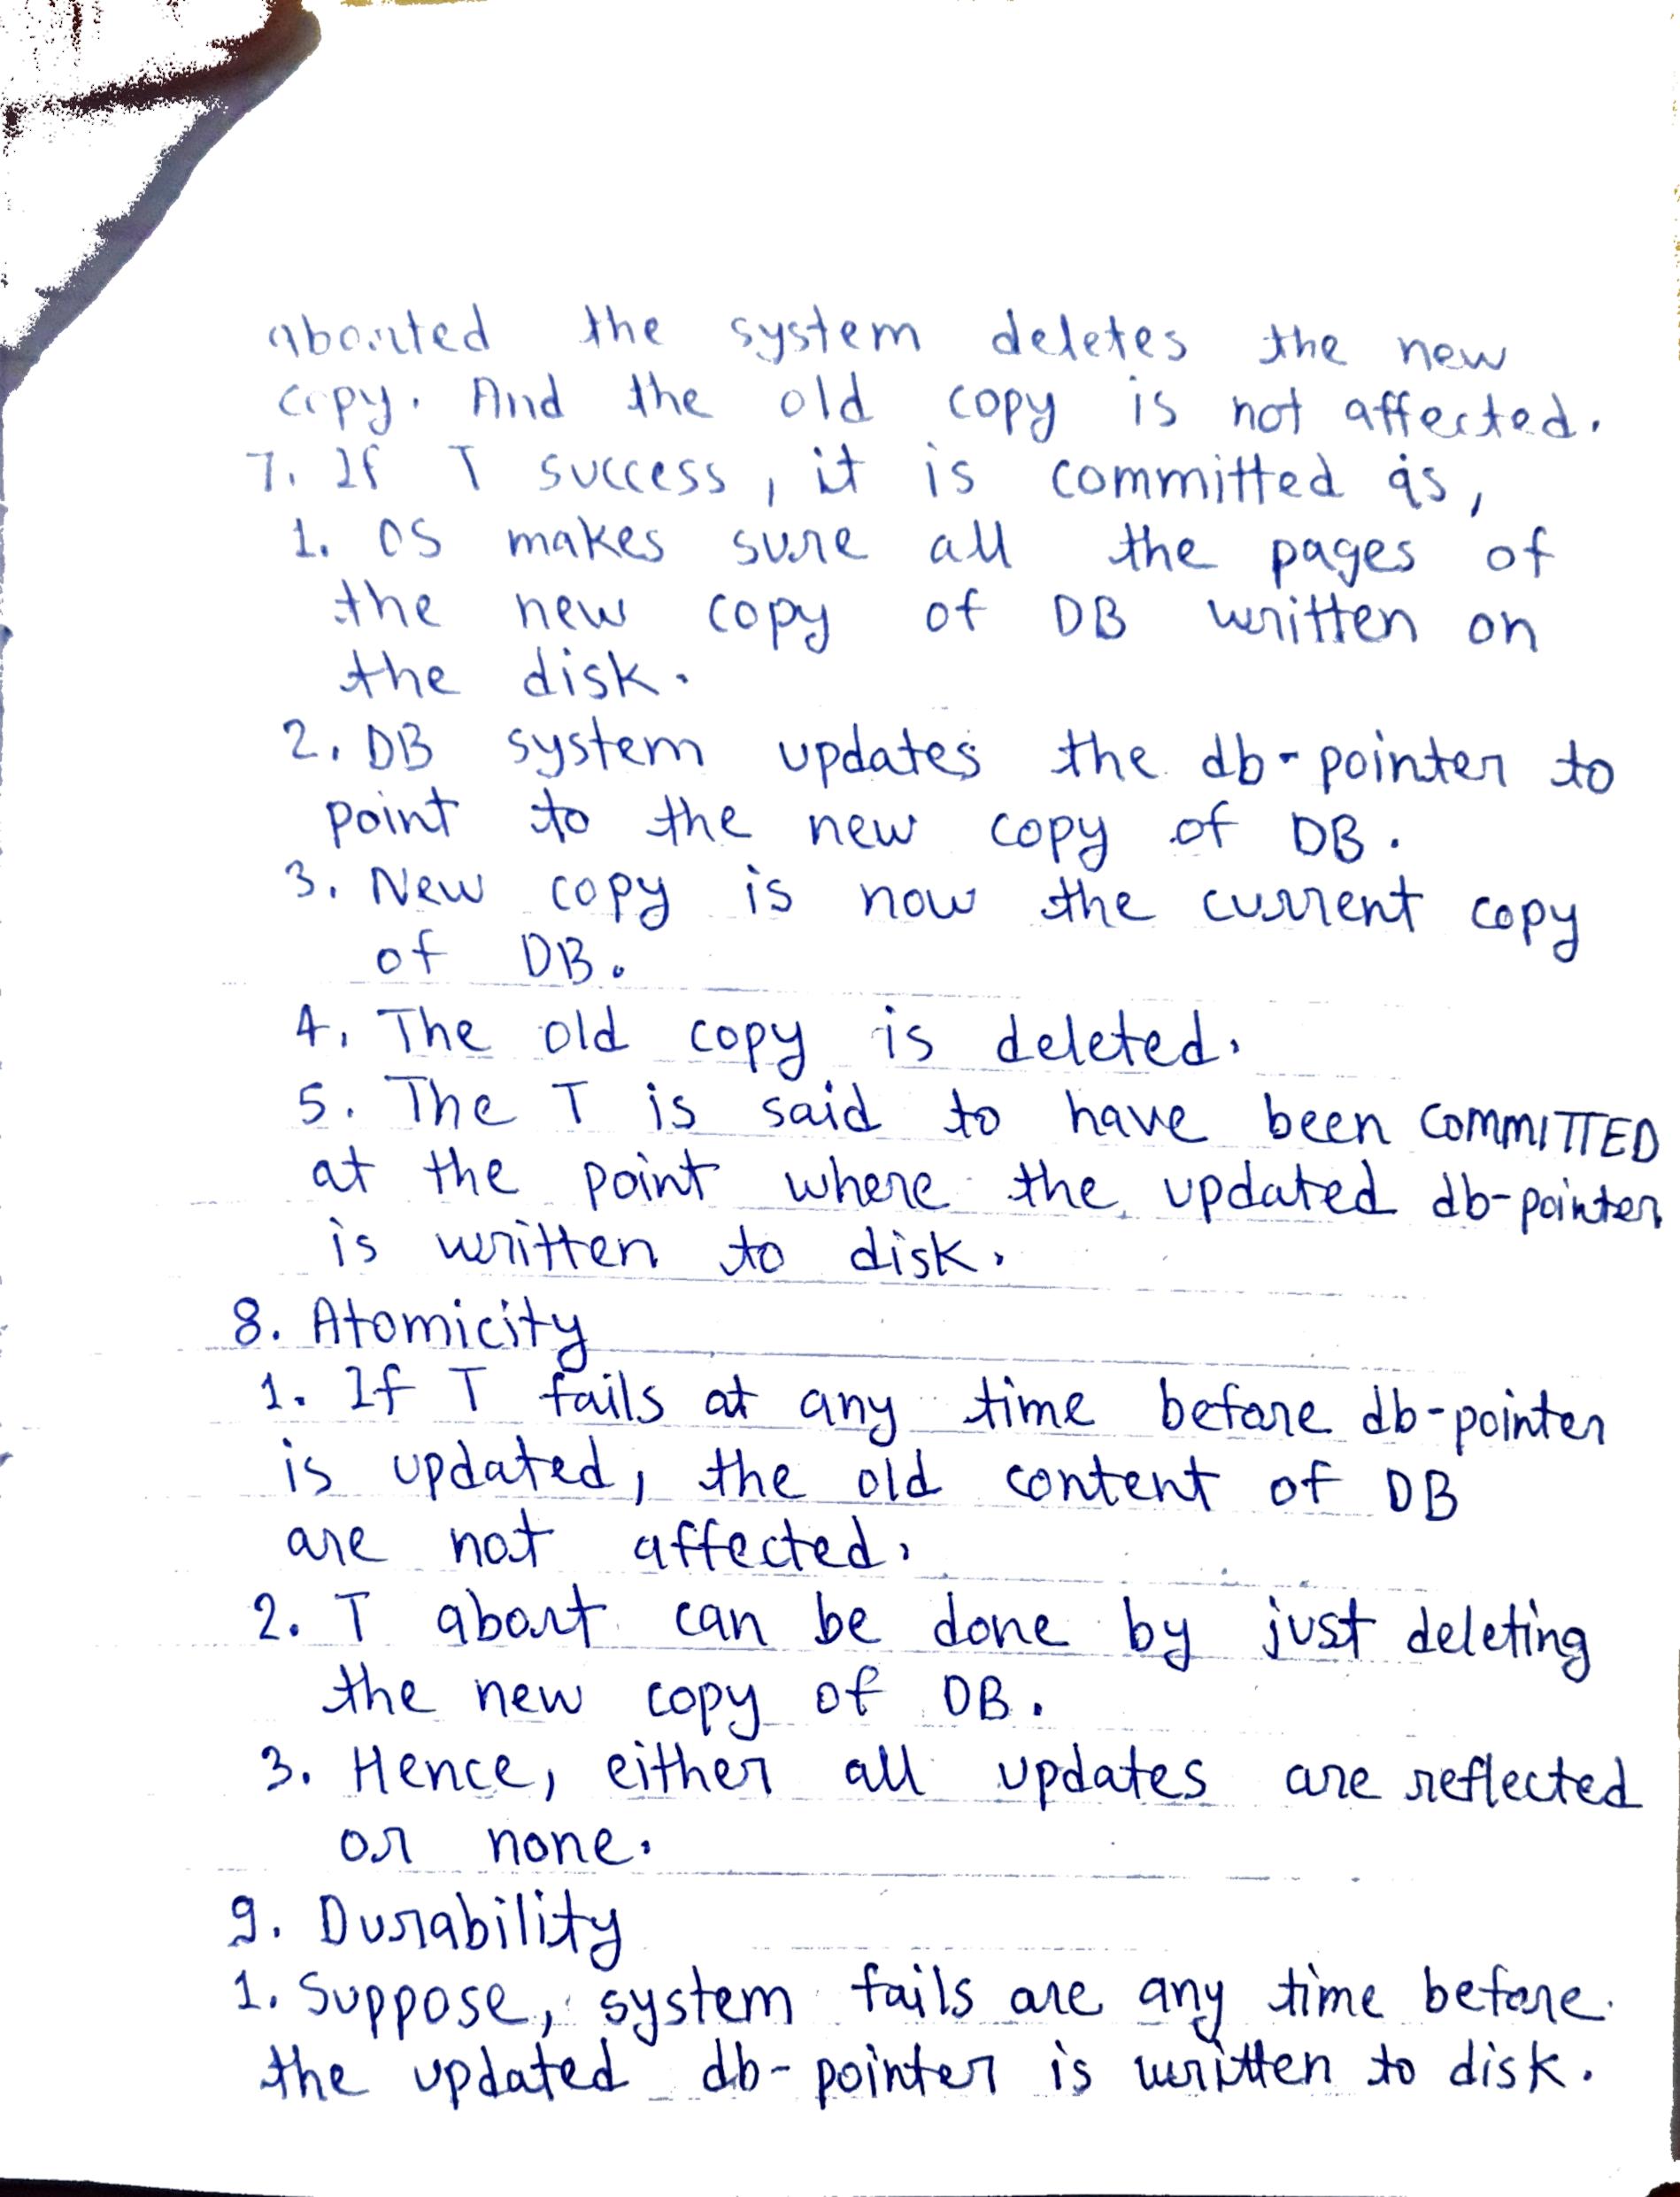 aborted the system deletes the new
copy. And the old copy is not affected.
7. If T success, it is committed as,
1. OS makes sure all the pages of
the new copy of DB written on
the disk.
2. DB system updates the db-pointer to
point to the new copy of DB.
3. New copy is now the current copy
of DB.
4. The old copy is deleted.
5. The T is said to have been COMMITTED
at the point where the updated db-pointer
is written to disk.
8. Atomicity
1. If T fails at any time before db-pointer
is updated, the old content of DB
are not affected.
2. T abort can be done by just deleting
the new copy of DB.
3. Hence, either all updates are reflected
or none.
9. Durability
1. Suppose, system fails are any time before
the updated db-pointer is written to disk.